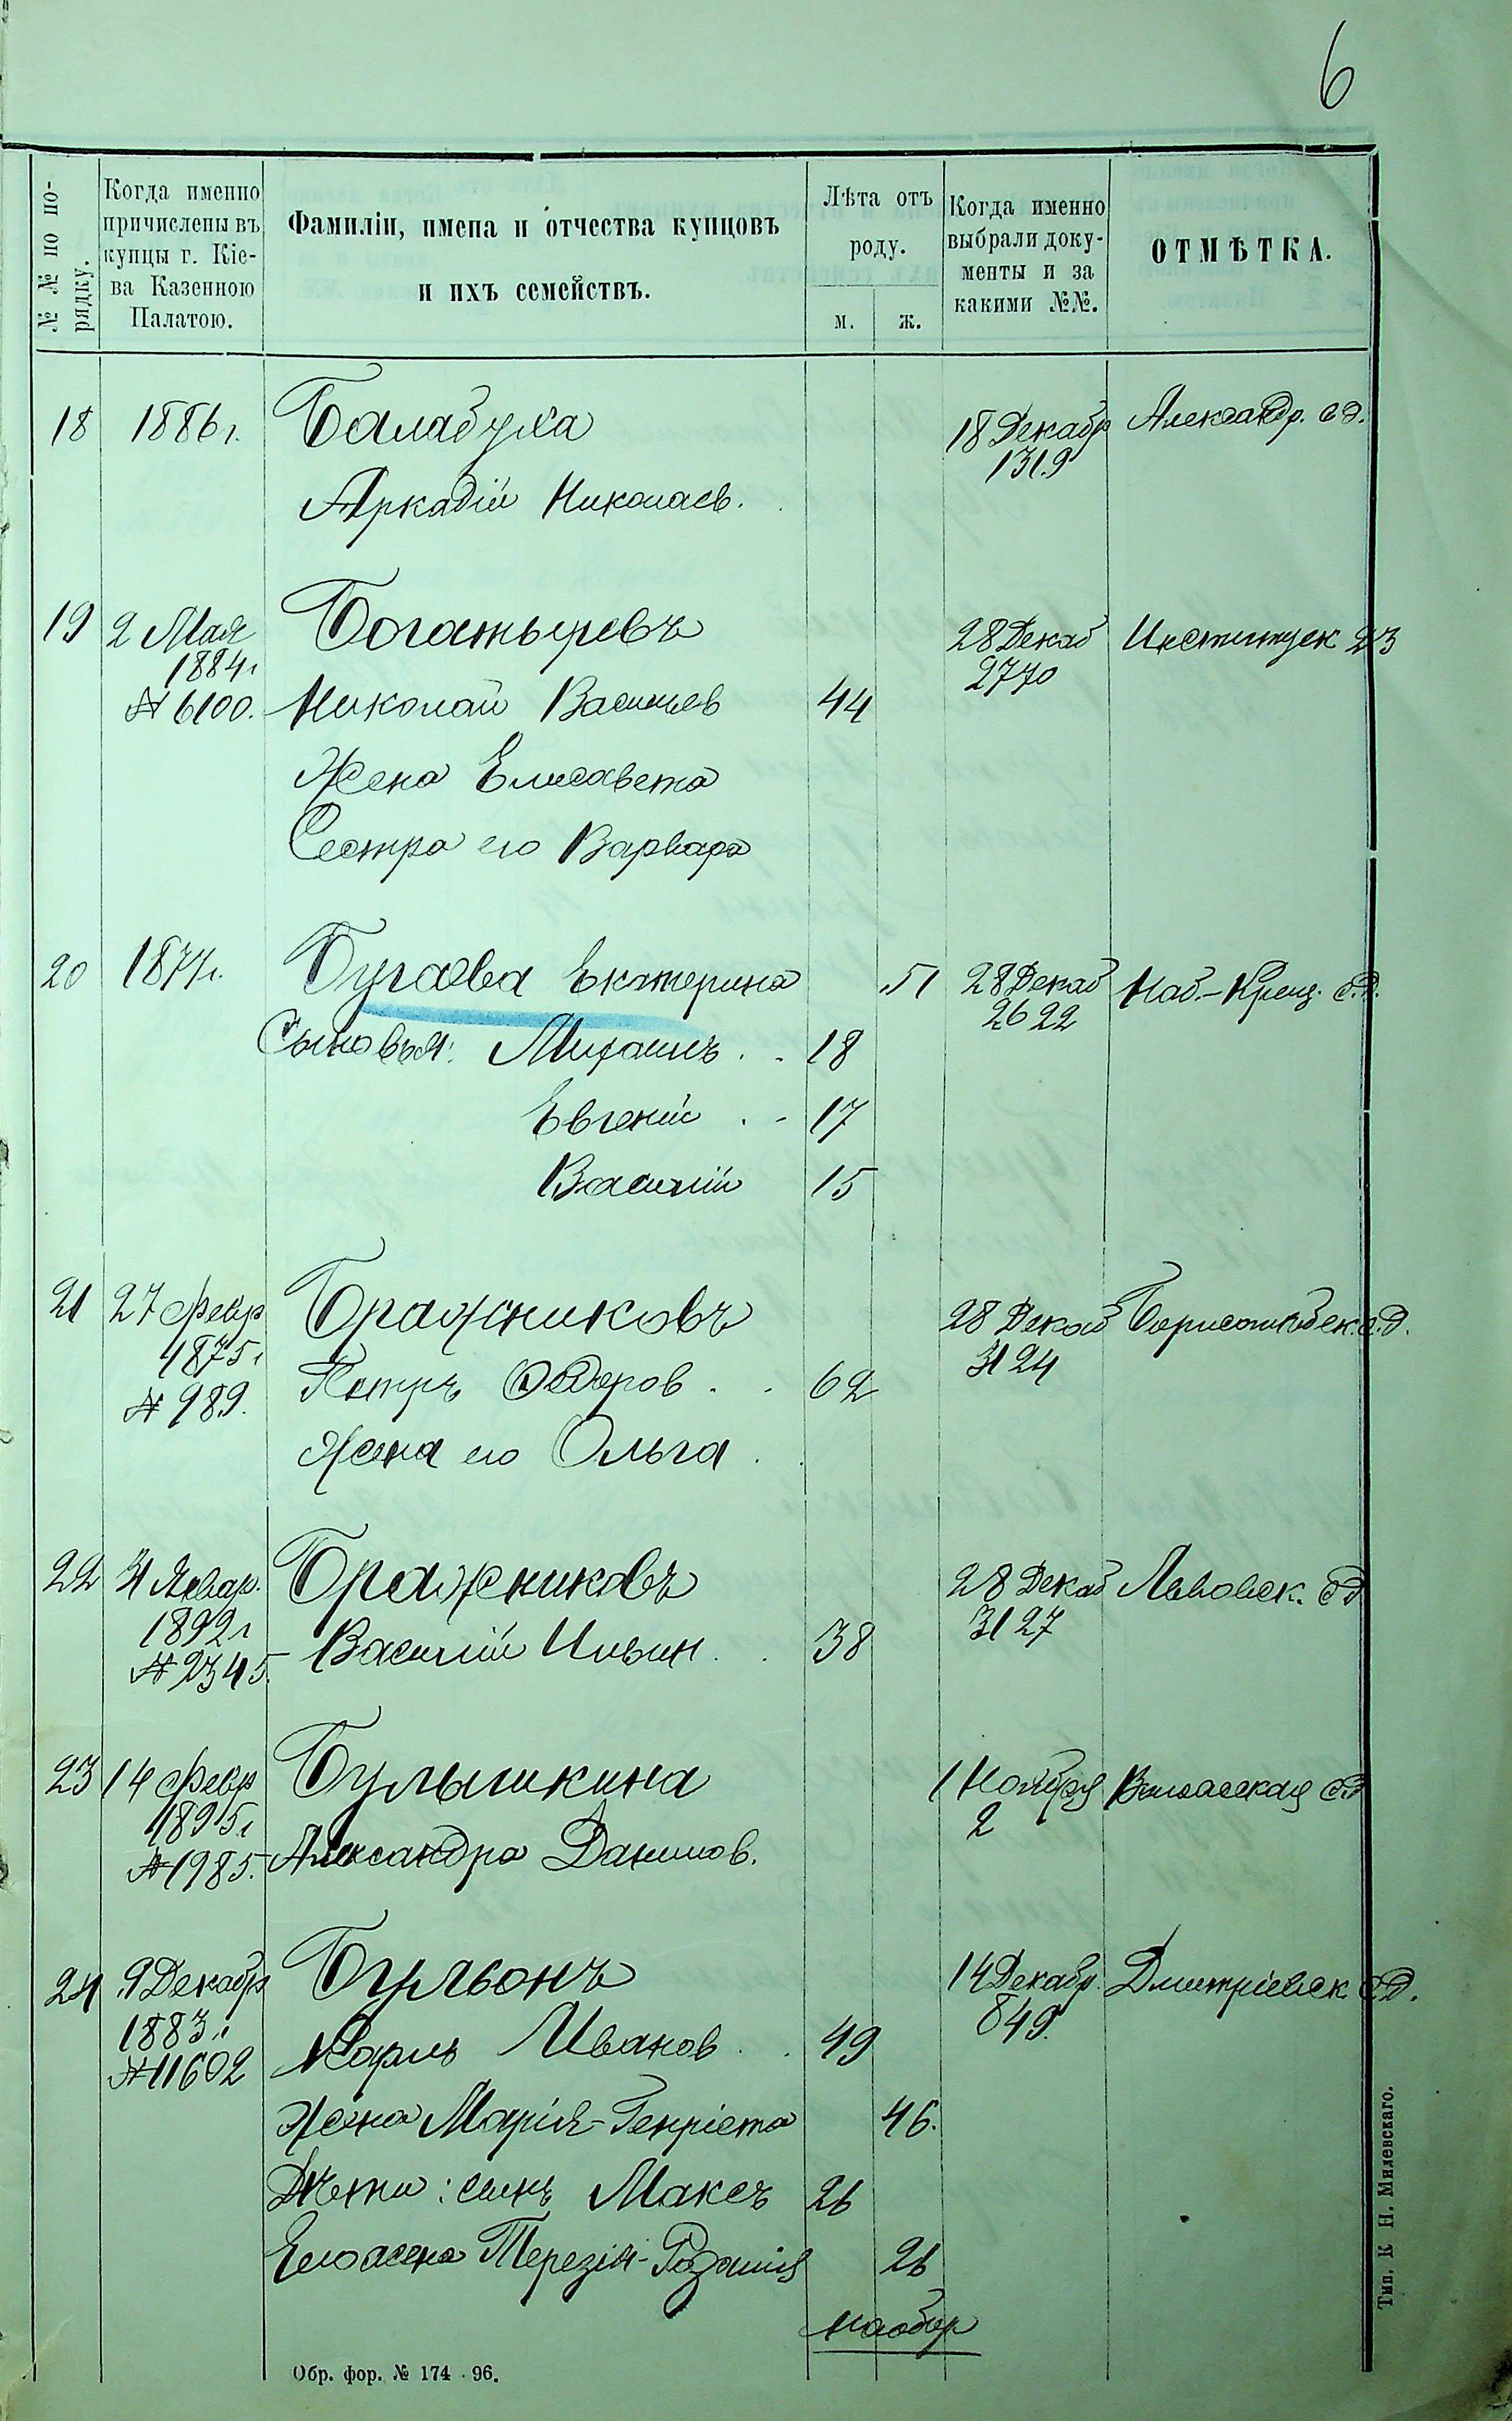 6
№ № по по-
рядку.
Когда именно
причислены въ
купцы г. Кіе-
ва Казенною
Палатою.
Фамиліи, имена и отчества купцовъ
и ихъ семействъ.
Лѣта отъ
роду.
м. ж.
Когда именно
выбрали доку-
менты и за
какими №№.
ОТМѢТКА.
18 1886 г. Балабуха 18 Декабр Александр. сд.
1319
Аркадій Николаев.
19 2 Мая Богатыревъ 28 Декаб Институтск 23
1884 г 2770
№ 6100. Николай Васильев 44
Жена Елисавета
Сестра его Варвара
20 1874 г. Бугаева Екатерина 51 28 Декаб Наб.-Крещ. с.д.
2622
Сыновья: Михаилъ . . 18
Евгеній . . 17
Василій 15
21 27 Февр Бражниковъ 28 Декаб Борисоглебск. с.д.
1875 г 3124
№ 989. Петръ Федоров . . 62
Жена его Ольга . .
22 31 Январ. Бражниковъ 28 Декаб Львовск. сд
1892 г 3127
№ 2345. Василій Ильин . . 38
23 14 Февр Булышкина 1 Ноября сд
1895 г 2
№ 1985. Александра Данилов.
24 9 Декабр Бульонъ 14 Декабр. Дмитріевск сд.
1883 г. 849.
№ 11602 Карлъ Иванов . . 49
Жена Марія-Генріета 46.
Дѣти: сынъ Максъ 26
Его жена Терезія-Розалія 26
наобор
Обр. фор. № 174 - 96.
Тип. К Н. Милевскаго.